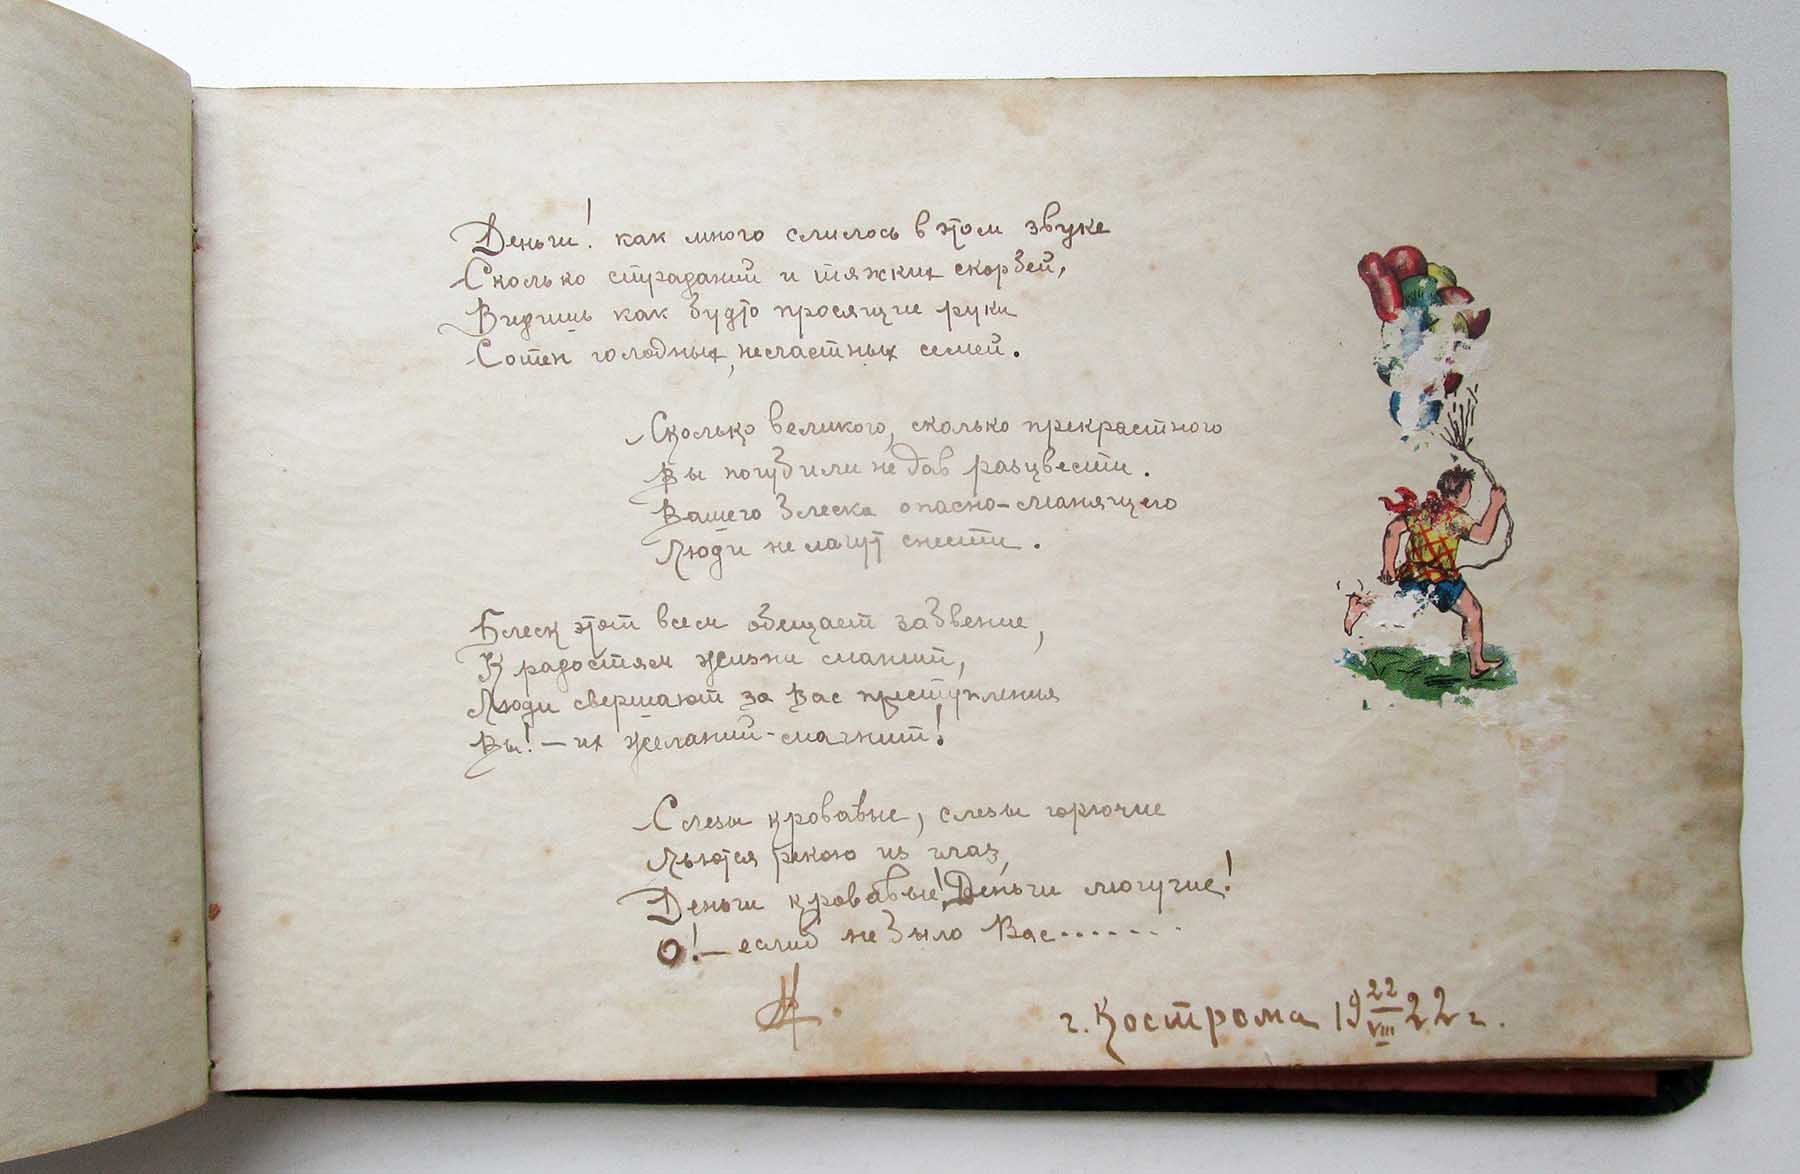 Деньги! как много слилось в этом звуке
Сколько страданий и тяжких скорбей,
Видишь как будто просящие руки
Сотен голодных, несчастных семей.
Сколько великого, сколько прекрастного
Вы погубили не дав расцвести.
Вашего блеска опасно-манящего
Люди не могут снести.
Блеск этот всем обещает забвение,
К радостям жизни манит,
Люди свершают за Вас преступления
Вы! – их желаний - магнит!
Слезы кровавые, слезы горючие
Льются рекою из глаз,
Деньги кровавые! Деньги могучие!
О! – еслиб не было Вас.......
г. Кострома 19 22/VIII 22 г.